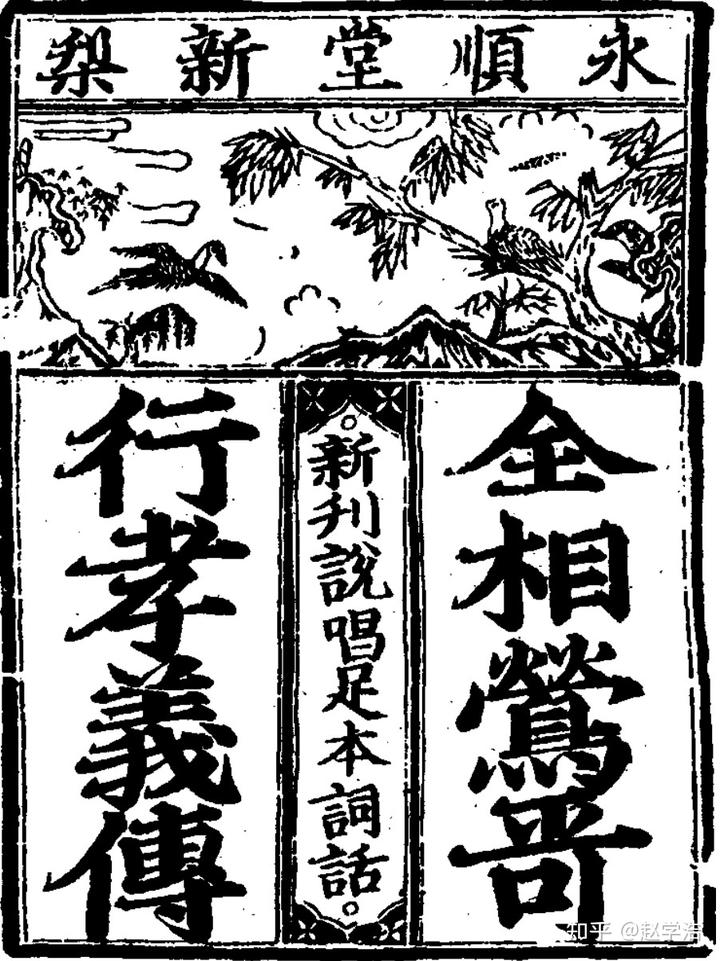 永順堂新梨
全相鶯哥
新刊說唱足本詞話
行孝義傳
知乎 @赵学浩